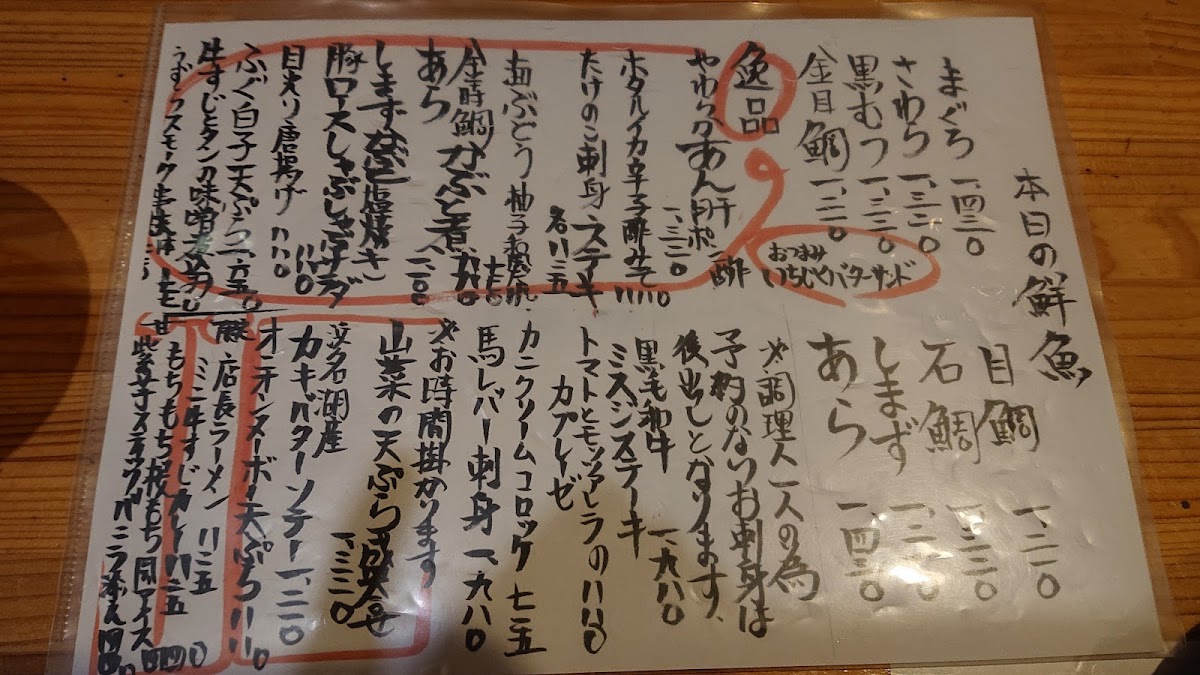 本日の鮮魚
まぐろ 一、四三〇
さわら 一、三二〇
黒むつ 一、三二〇
金目鯛 一、二一〇
目鯛 一、二一〇
石鯛 一、三二〇
しまず
あら 一、四三〇
おつまみ
いちじくバターサンド
逸品
やわらかあん肝ポン酢 一、三二〇
ホタルイカ辛子酢みそ
たけのこ刺身 ステーキ
ぶどう 柚子
金時鯛かぶと煮
あら
しまず 塩焼き
豚ロースしゃぶしゃぶサラダ
目光り唐揚げ 八八〇
ふぐ白子天ぷら 一、六五〇
牛すじとタンの味噌煮
スモーク
※調理人一人の為
予約のないお刺身は
後出しとなります、
黒毛和牛
ミスジステーキ 一、九八〇
トマトとモッツァレラの
カプレーゼ
カニクリームコロッケ 七一五
馬レバー刺身 一、九八〇
※お時間掛かります
山菜の天ぷら盛合せ 一、三二〇
浜名湖産
カキバターソテー 一、二一〇
オニオンヌーボー天ぷら
店長ラーメン
ミニ牛すじカレー
もちもち桜もち
紫芋スティックバニラ添え